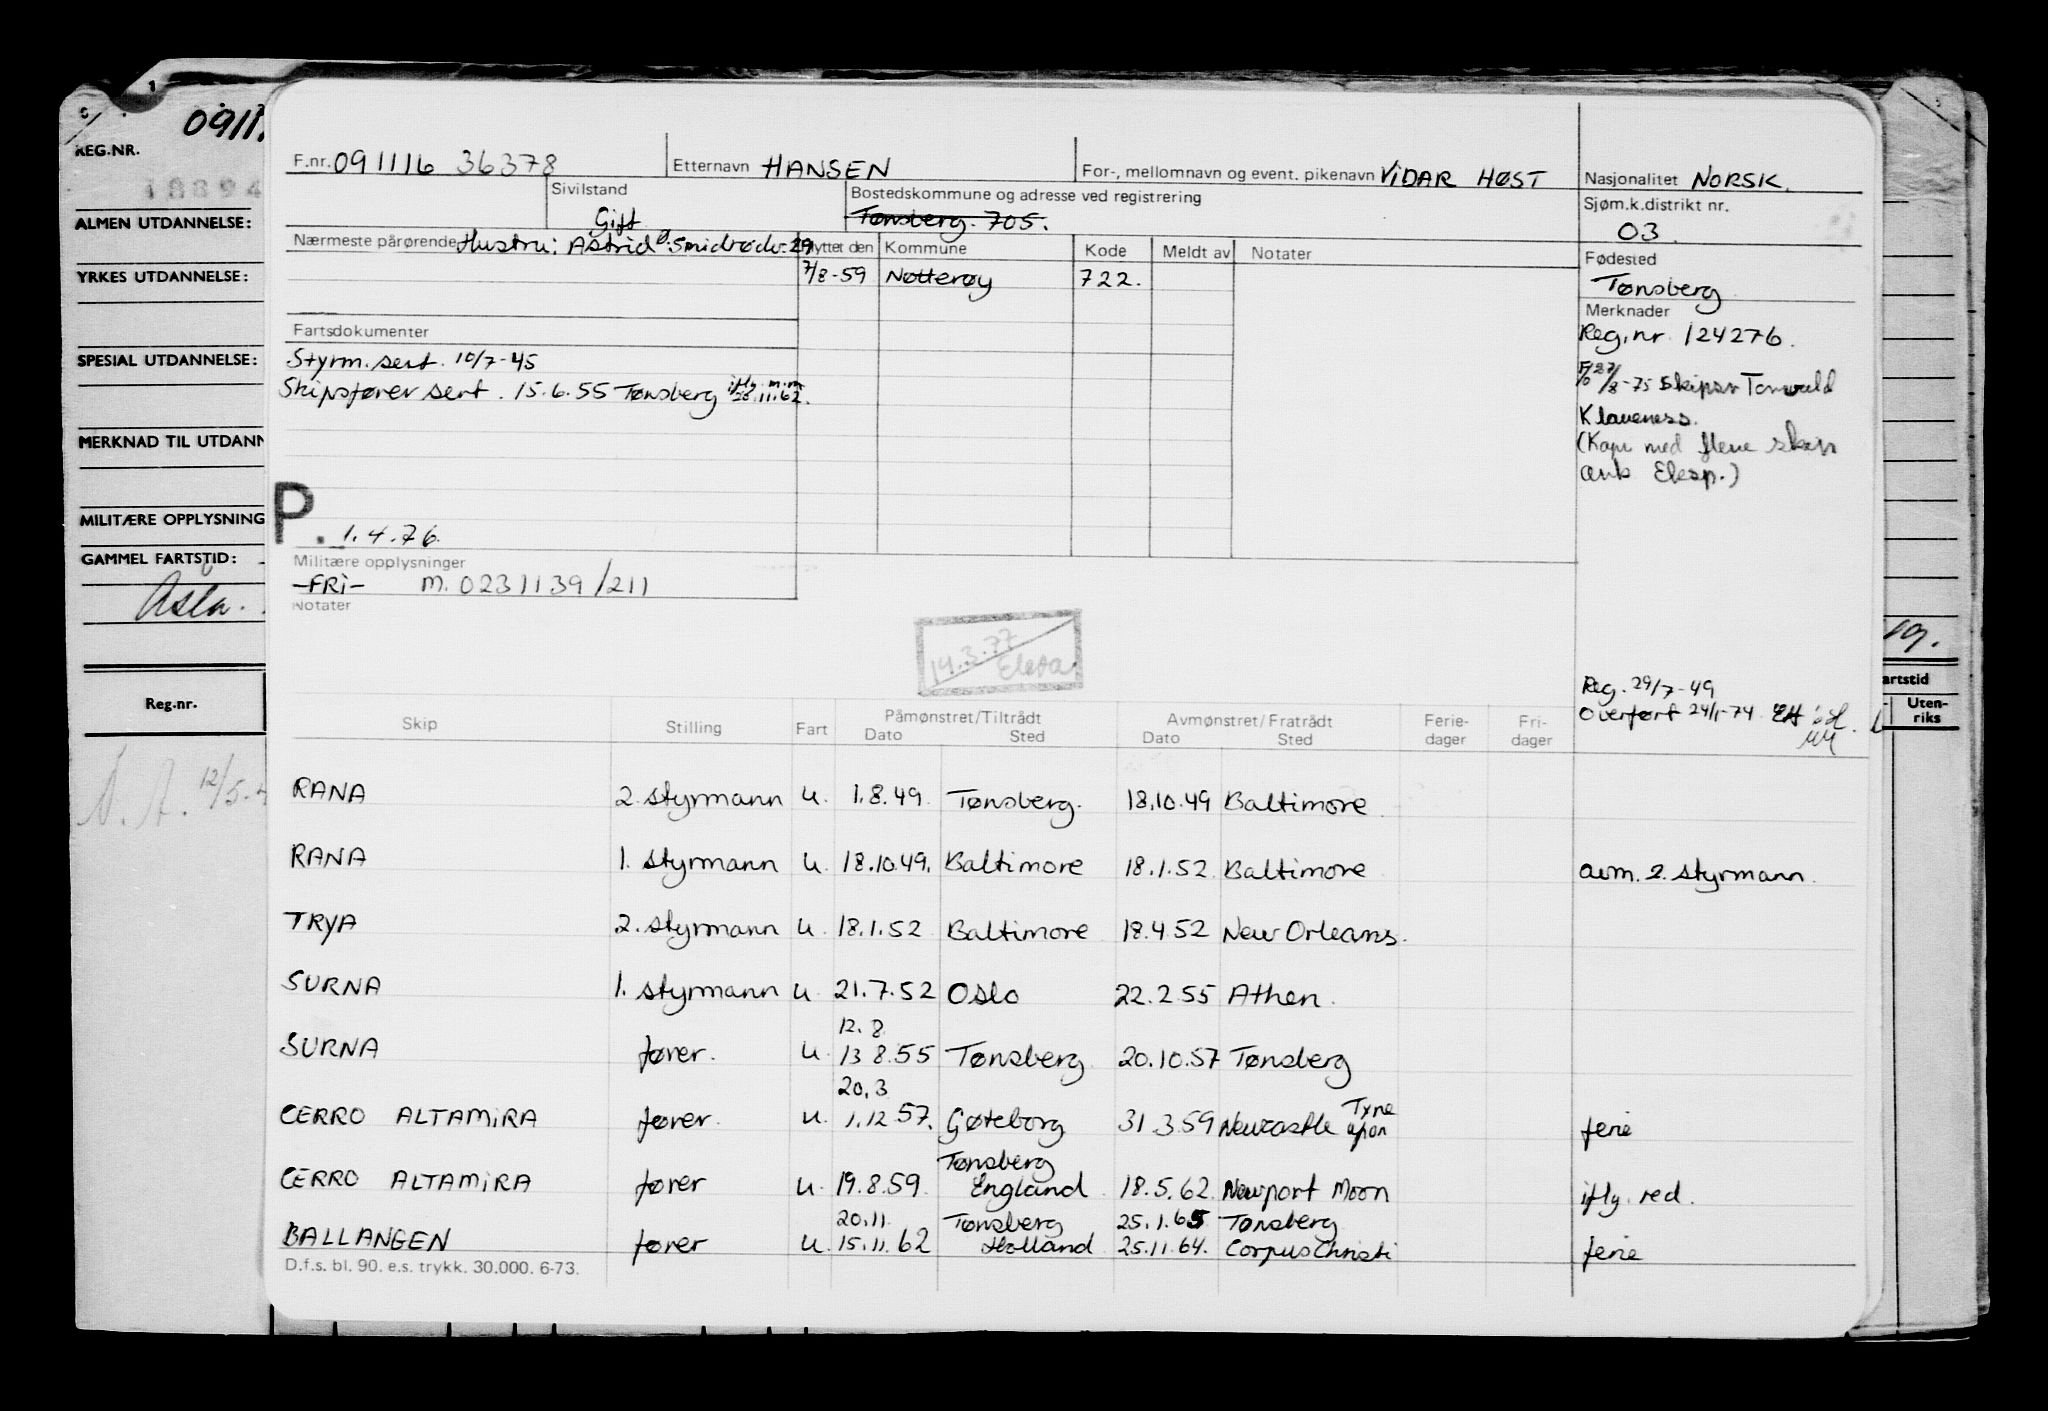 0911
REG.NR.
18894
ALMEN UTDANNELSE:
YRKES UTDANNELSE:
SPESIAL UTDANNELSE:
MERKNAD TIL UTDANN
MILITÆRE OPPLYSNING
GAMMEL FARTSTID:
Reg.nr.
12/5-4
F.nr. 091116 36378 Etternavn HANSEN For-, mellomnavn og event. pikenavn VIDAR HØST Nasjonalitet NORSK.
Sivilstand Gift
Bostedskommune og adresse ved registrering
Tønsberg. 705.
Sjøm.k.distrikt nr.
03
Nærmeste pårørende Hustru: Astrid
Flyttet den Kommune Kode Meldt av Notater
7/8-59 Nøtterøy 722.
Fødested
Tønsberg
Merknader
Reg.nr 124276.
Fartsdokumenter
Styrm.sert. 10/7-45
Skipsfører sert. 15.6.55 Tønsberg
/8-75 Skipsr Torvald
Klaveness.
(Kapt med flere skip
P. 1.4.76
Militære opplysninger
-FRi- M. 0231139/211
Notater
14.3.77
Reg. 29/7-49
Overført 24/1-74
Skip Stilling Fart Påmønstret/Tiltrådt Avmønstret/Fratrådt Ferie- Fri-
Dato Sted Dato Sted dager dager
artstid
Uten-
riks
RANA 2. styrmann u. 1.8.49 Tønsberg. 18.10.49 Baltimore
RANA 1. styrmann u. 18.10.49. Baltimore 18.1.52 Baltimore avm. 2. styrmann.
TRYA 2. styrmann u. 18.1.52 Baltimore 18.4.52 New Orleans.
SURNA 1. styrmann u. 21.7.52 Oslo 22.2.55 Athen.
12.8
SURNA fører. u. 13 8.55 Tønsberg 20.10.57 Tønsberg
20.3
CERRO ALTAMIRA fører. u. 1.12.57. Gøteborg 31.3.59 Newcastle upon Tyne ferie
Tønsberg
CERRO ALTAMIRA fører u. 19.8.59 England 18.5.62 Newport Moon iflg. red.
20.11. Tønsberg 25.1.65 Tønsberg
BALLANGEN fører u. 15.11.62 Holland 25.11.64. Corpus Christi ferie
D.f.s. bl. 90. e.s. trykk. 30.000. 6-73.